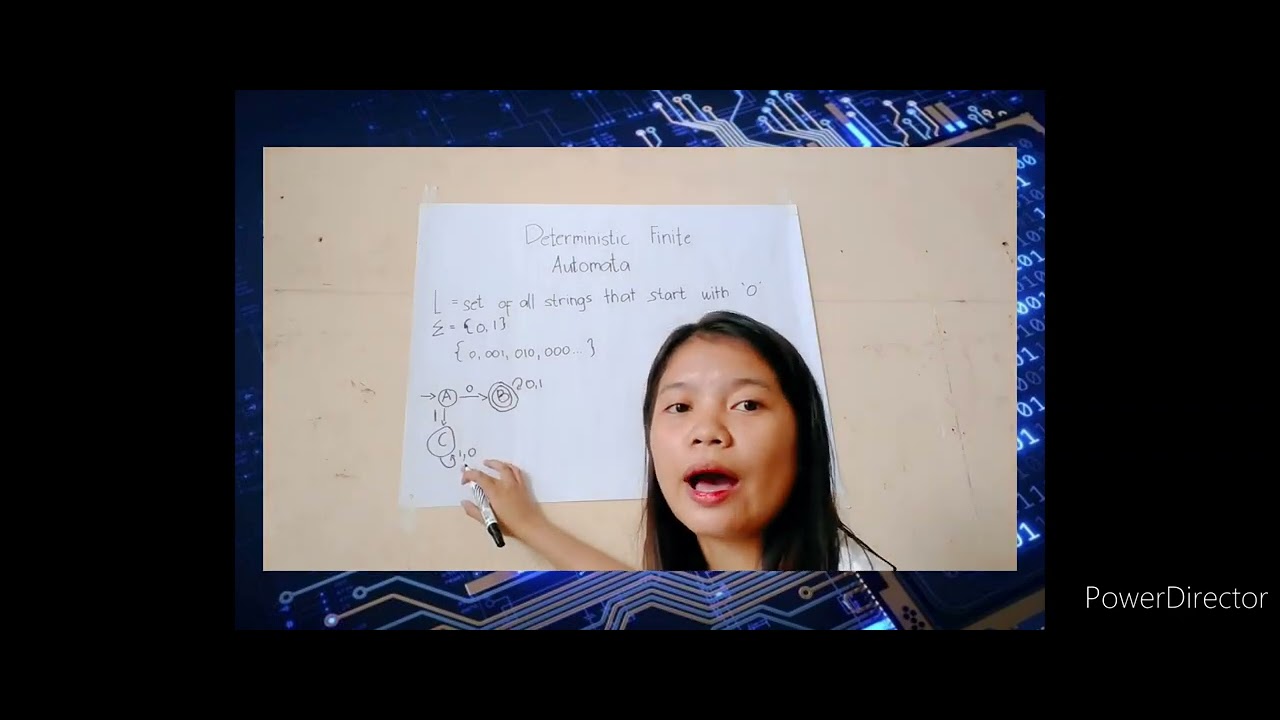 Deterministic Finite
Automata
L = set of all strings that start with '0'
Σ = {0,1}
{ 0, 001, 010, 000... }
A 0 B 0,1
1
C
1,0
PowerDirector